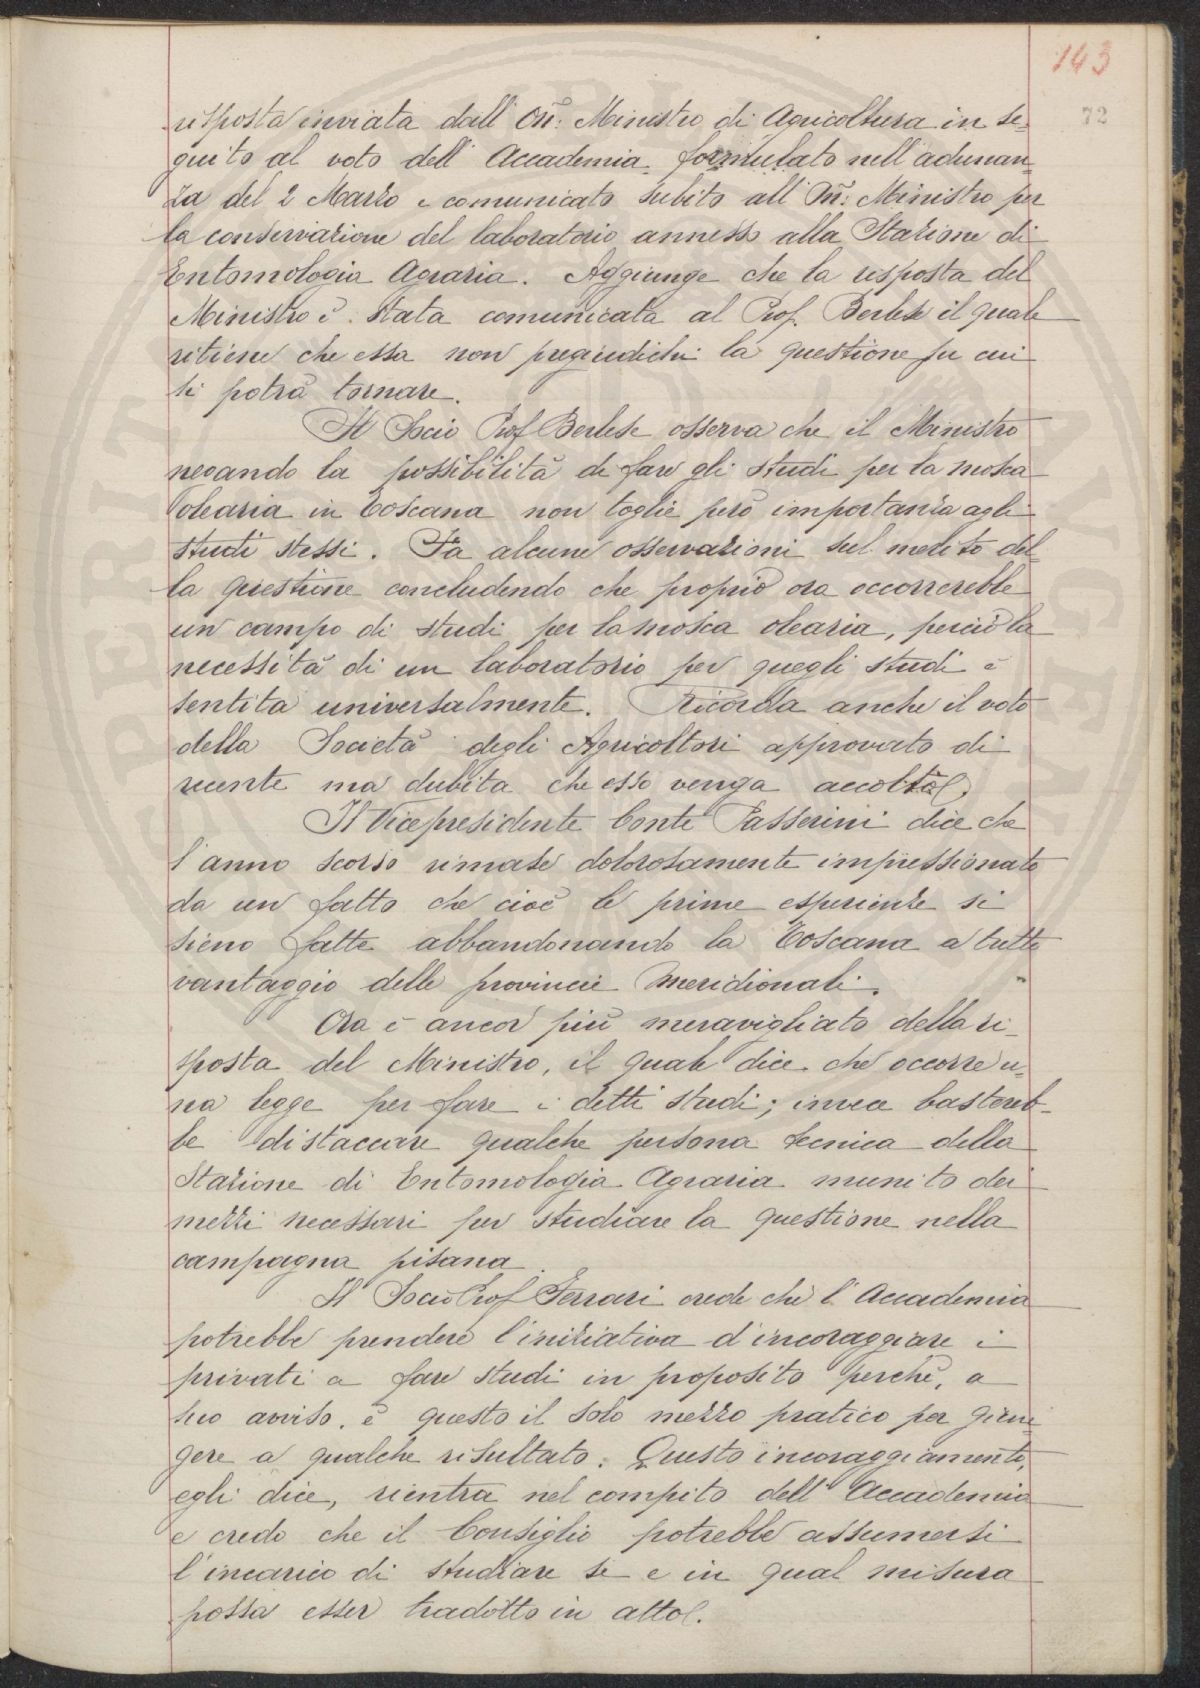 143
72
risposta inviata dall' On: Ministro di Agricoltura in se-
guito al voto dell' Accademia formulato nell'adunan-
za del 2 Marzo e comunicato subito all' On: Ministro per
la conservazione del laboratorio annesso alla Stazione di
Entomologia Agraria. Aggiunge che la risposta del
Ministro è stata comunicata al Prof. Berlese il quale
ritiene che essa non pregiudichi la questione su cui
si potrà tornare.
Il Socio Prof Berlese osserva che il Ministro
negando la possibilità di fare gli studi per la mosca
olearia in Toscana non toglie però importanza agli
studi stessi. Fa alcune osservazioni sul merito del-
la questione concludendo che proprio ora occorrerebbe
un campo di studi per la mosca olearia, perciò la
necessità di un laboratorio per quegli studi è
sentita universalmente. Ricorda anche il voto
della Società degli Agricoltori approvato di
recente ma dubita che esso venga accolto.
Il Vicepresidente Conte Passerini dice che
l'anno scorso rimase dolorosamente impressionato
da un fatto che cioè le prime esperienze si
sieno fatte abbandonando la Toscana a tutto
vantaggio delle provincie meridionali.
Ora è ancor più meravigliato della ri-
sposta del Ministro, il quale dice che occorre u-
na legge per fare i detti studi; invece bastereb-
be distaccare qualche persona tecnica della
Stazione di Entomologia Agraria munito dei
mezzi necessari per studiare la questione nella
campagna pisana.
Il Socio Prof Ferrari crede che l'Accademia
potrebbe prendere l'iniziativa d'incoraggiare i
privati a fare studi in proposito perchè, a
suo avviso, è questo il solo mezzo pratico per giun-
gere a qualche risultato. Questo incoraggiamento,
egli dice, rientra nel compito dell' Accademia
e credo che il Consiglio potrebbe assumersi
l'incarico di studiare se e in qual misura
possa esser tradotto in atto.